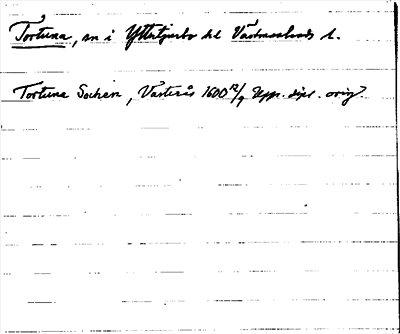 Tortuna, sn i Yttertjurbo hd Västmanlands l.
Tortuna Sochen, Västerås 1600 12/9 Upps. dipl. orig.